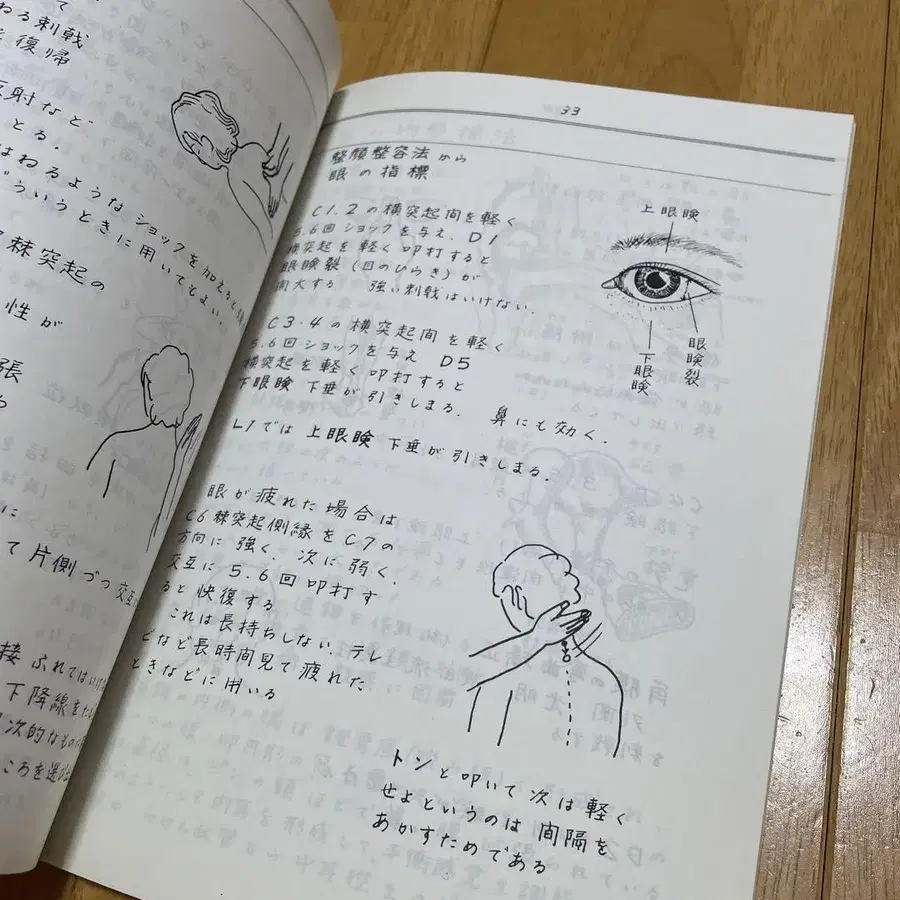 て
ねる刺戟
復帰
反射など
とる.
はねるような ショックを加えると
どういうときに用いてもよい.
棘突起の
性が
張
に
て 片側づつ 交互に
接 ふれてはいけな
下降線をた
次的なもの
ころを選び
33
整顔整容法から
眼の指標
C1.2の横突起間を軽く
5.6回ショックを与え. D1
横突起を軽く叩打すると
眼瞼裂(目のひらき)が
開大する 強い刺戟はいけない.
C3.4の横突起間を軽く
5.6回ショックを与え D5
横突起を軽く叩打すると
下眼瞼 下垂が引きしまる. 鼻にも効く.
L1では 上眼瞼 下垂が引きしまる.
上眼瞼
眼瞼裂
下眼瞼
眼が疲れた場合は
C6棘突起側縁をC7の
方向に 強く. 次に弱く.
交互に 5.6回叩打す
ると快復する
これは長持ちしない. テレ
ビなど長時間見て疲れた
ときなどに用いる
トンと叩いて次は軽く
せよというのは間隔を
あかすためである